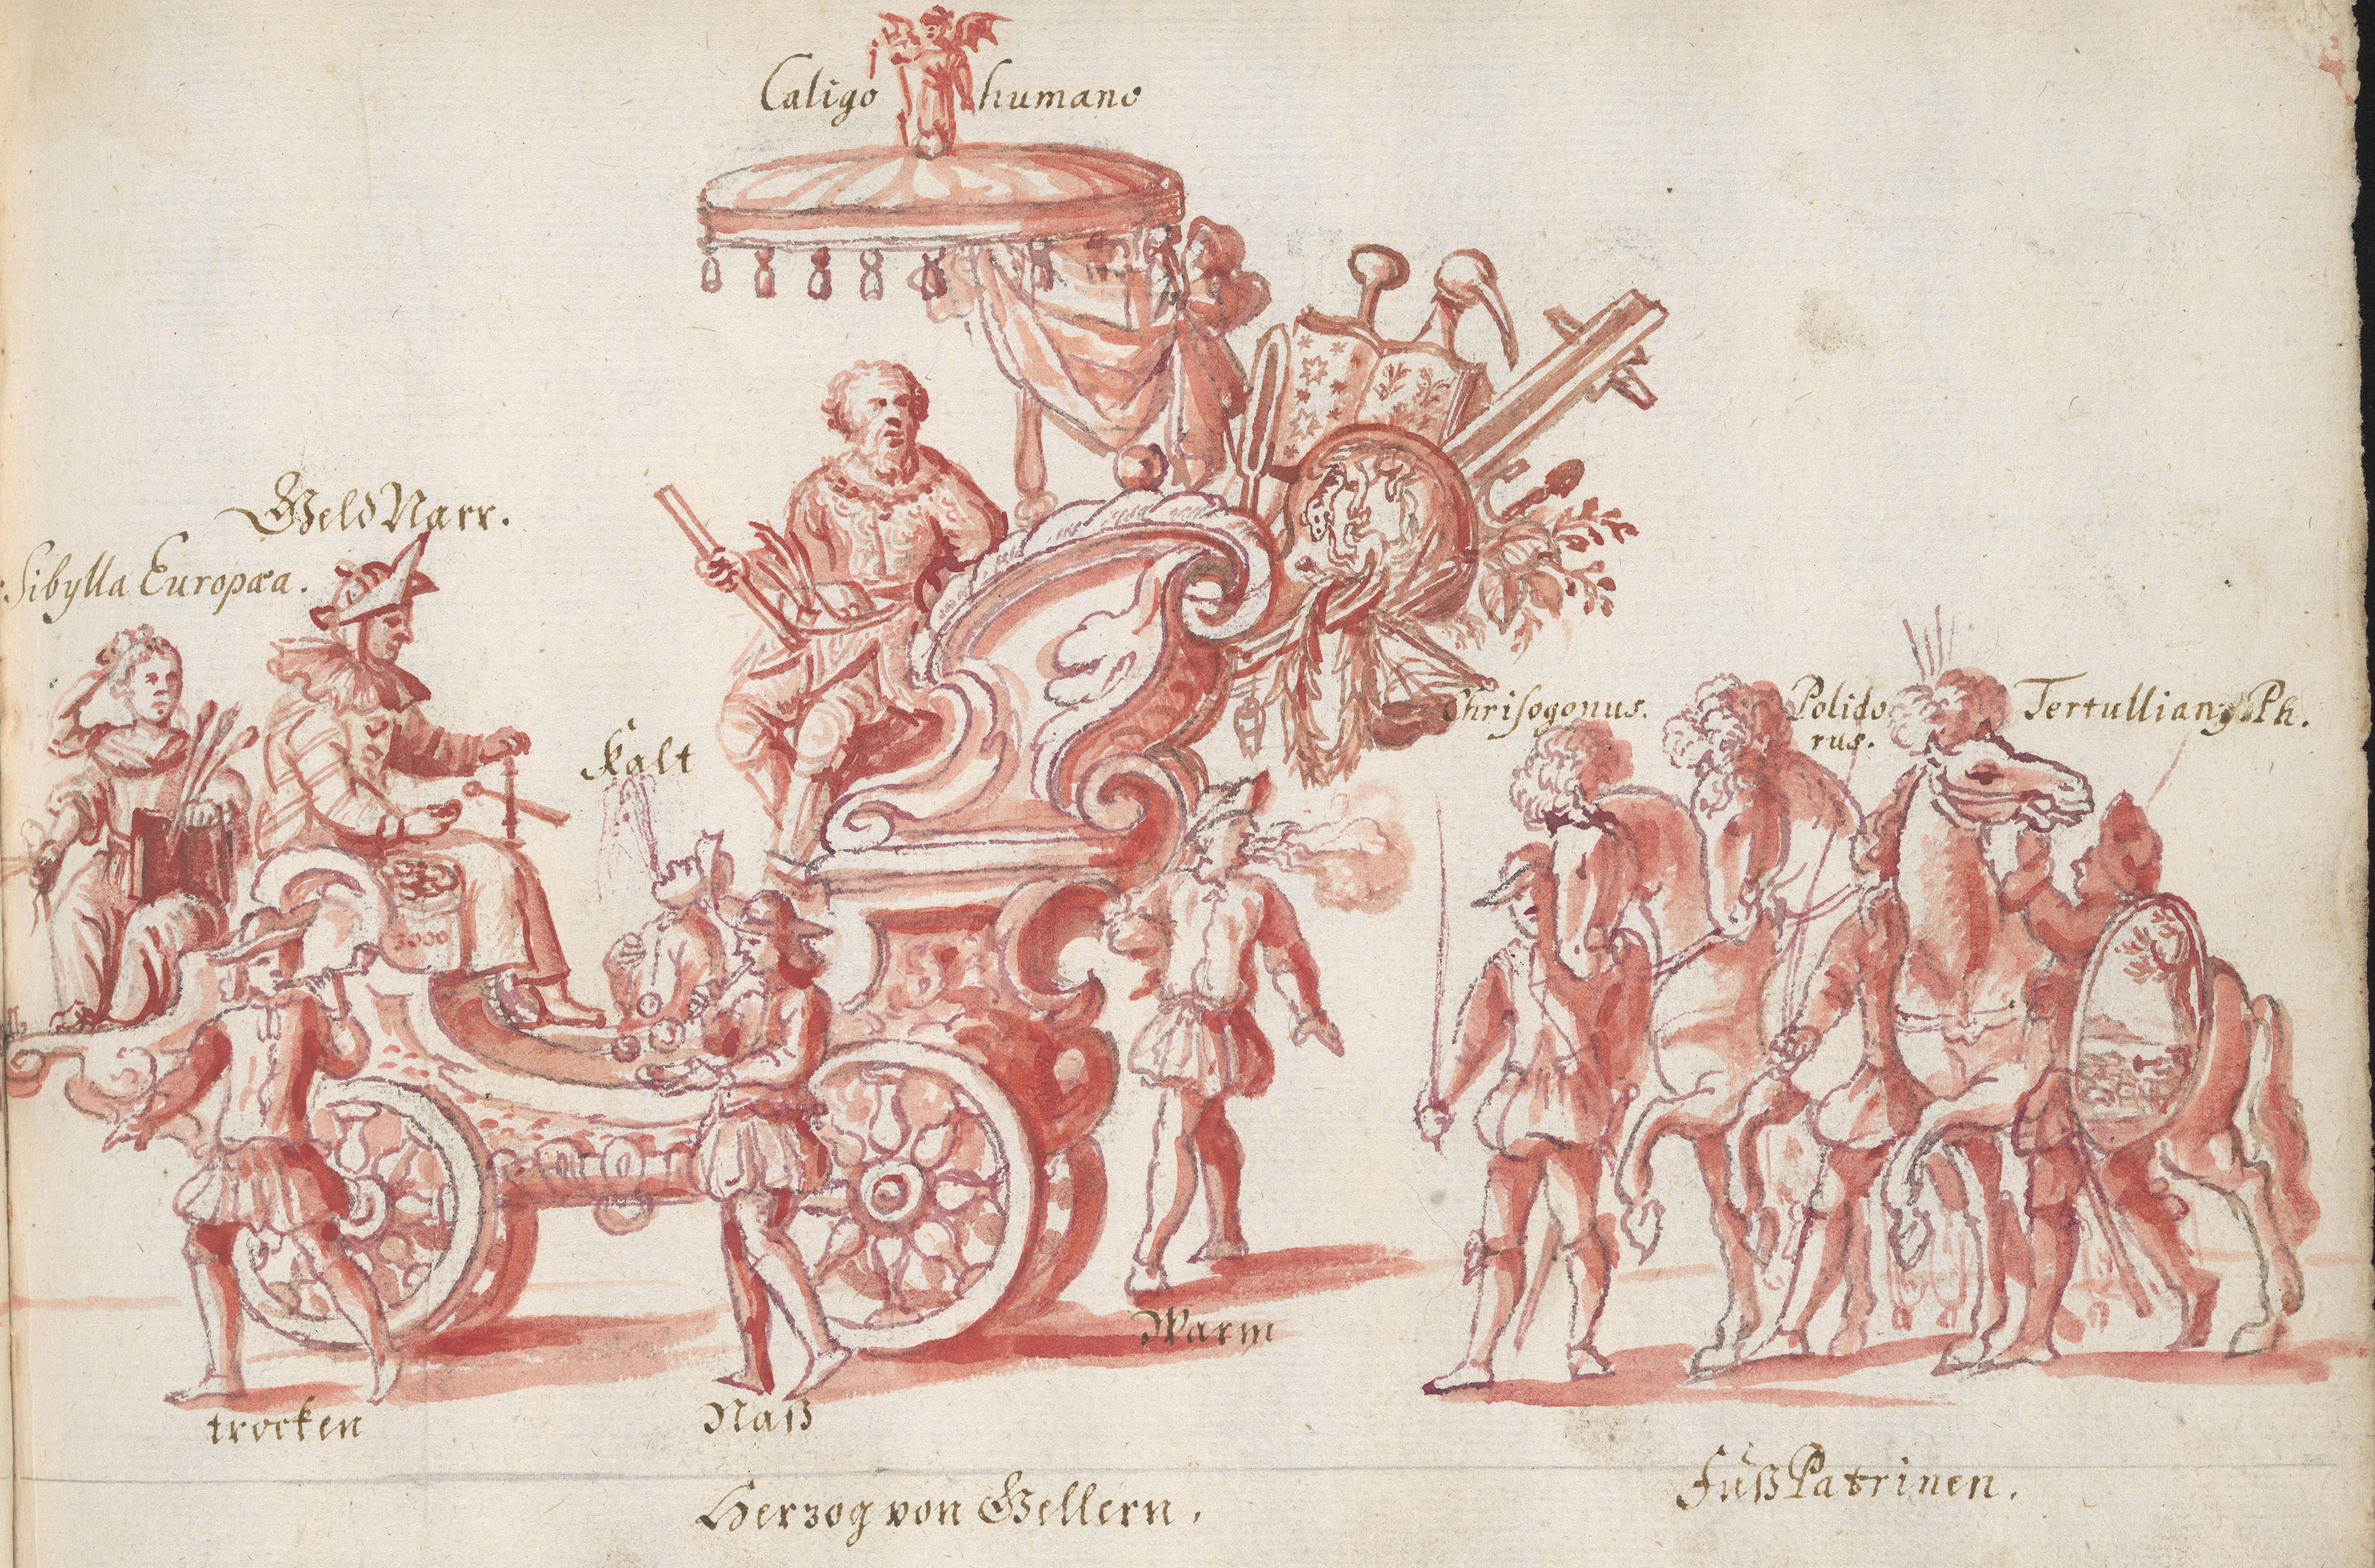 Caligo humano
Geld Narr.
Sibylla Europæa.
Kalt
Chrisogonus.
Polido
rus.
Tertullian9 Ph.
3000
Warm
trocken
Naß
Herzog von Gellern.
FüßPatrinen.